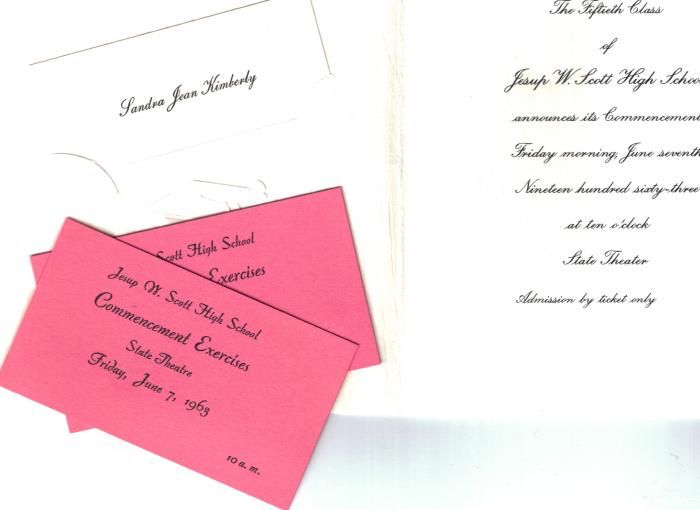 Sandra Jean Kimberly
The Fiftieth Class
of
Jesup W. Scott High School
announces its Commencement
Friday morning, June seventh
Nineteen hundred sixty-three
at ten o'clock
State Theater
Admission by ticket only
Scott High School
Exercises
Jesup W. Scott High School
Commencement Exercises
State Theatre
Friday, June 7, 1963
10 a.m.